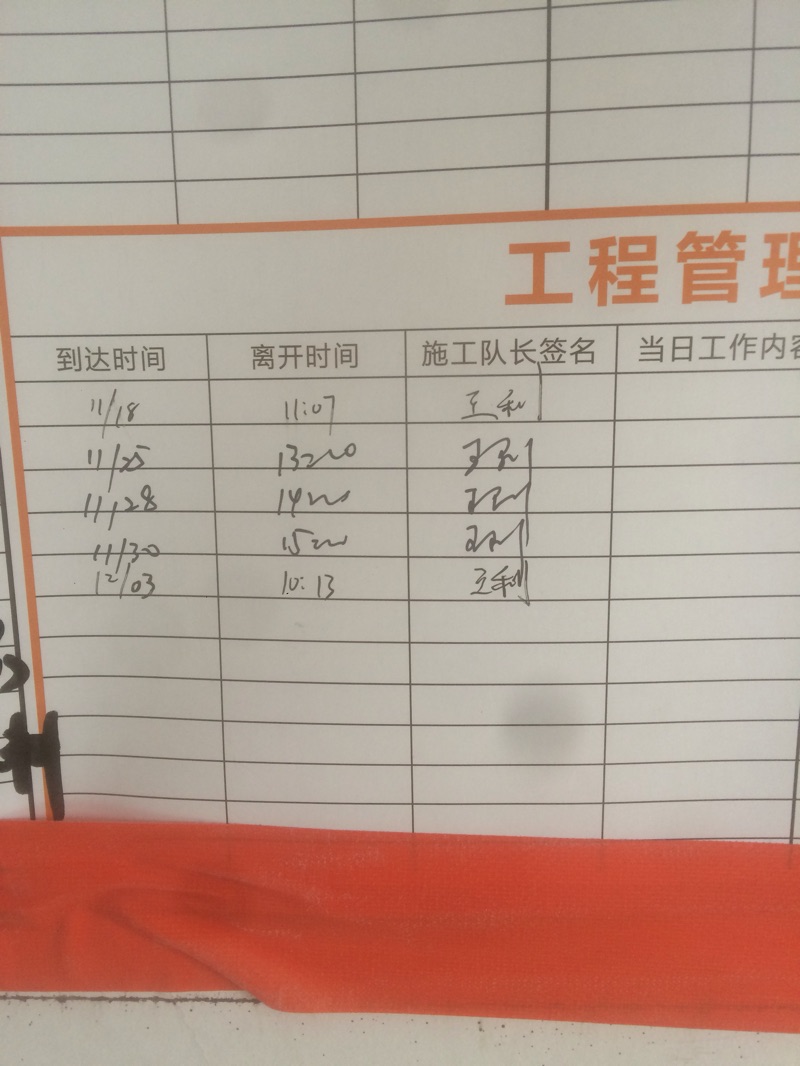 工程管理
到达时间 离开时间 施工队长签名 当日工作内容
11/18 11:07 王利
11/25 13:20 王利
11/28 14:20 王利
11/30 15:20 王利
12/03 10:13 王利